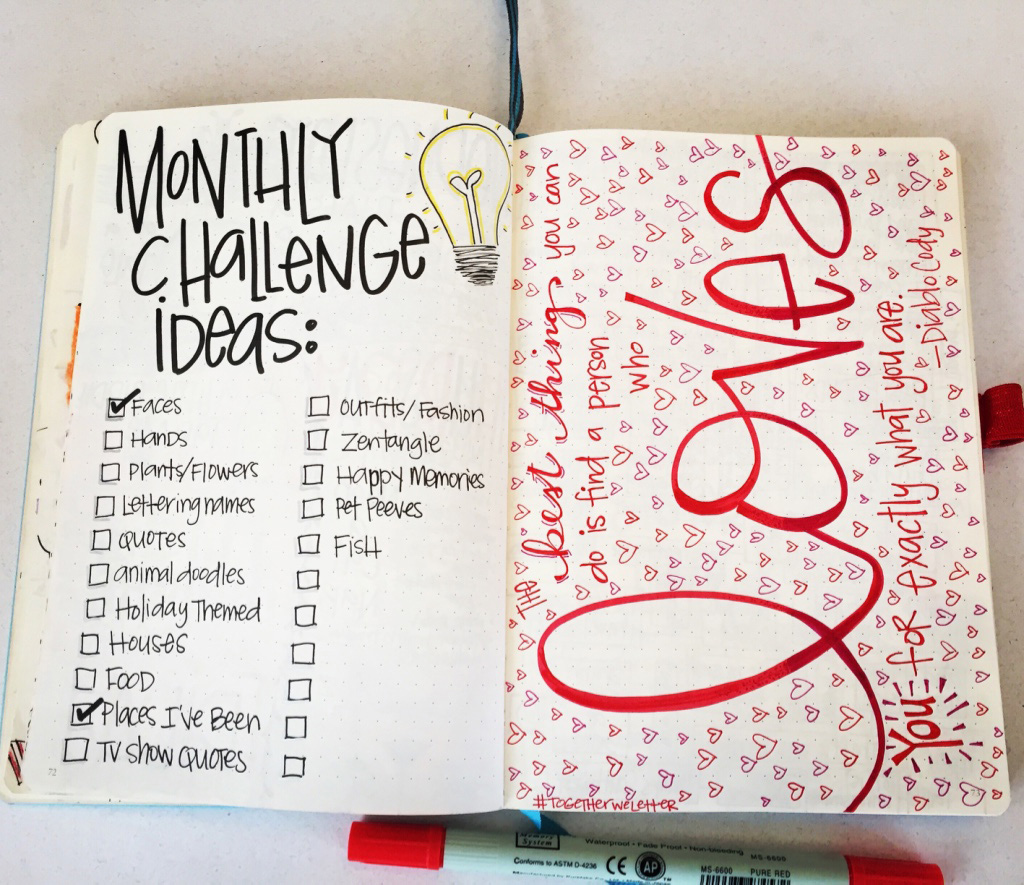 MONTHLY
CHALLENGE
IDEAS:
✔ FACES
☐ HANDS
☐ PLANTS/FLOWERS
☐ LETTERING NAMES
☐ QUOTES
☐ ANIMAL DOODLES
☐ HOLIDAY THEMED
☐ HOUSES
☐ FOOD
✔ PLACES I'VE BEEN
☐ TV SHOW QUOTES
☐ OUTFITS/FASHION
☐ ZENTANGLE
☐ HAPPY MEMORIES
☐ PET PEEVES
☐ FISH
72
THE best things you can
do is find a person
who
loves
You FOR exactly what you are.
—Diablo Cody
#TOGETHERWELETTER
Memory
System
Waterproof • Fade Proof • Non-bleeding MS-6600
Conforms to ASTM D-4236
CE
AP
MS-6600 PURE RED